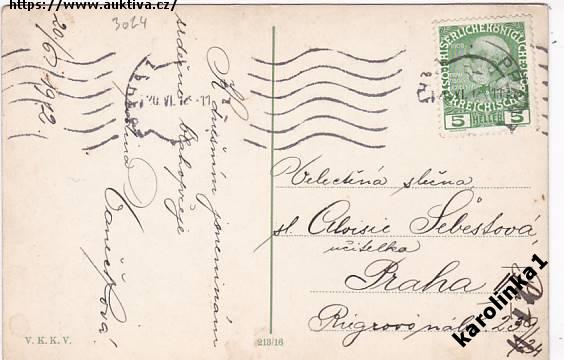 https://www.auktiva.cz/
3024
20/6 1912
K dnešním jmeninám
srdečně blahopřeje
rodina
Vaněčkova
20.VI.12-11
KAISERLICHE KÖNIGLICHE
ÖSTERREICHISCHE
5 HELLER 5
Velectěná slečna
sl. Aloisie Šebestová,
učitelka
Praha
Riegrovo nábř.
V. K. K. V.
213/16
karolinka1